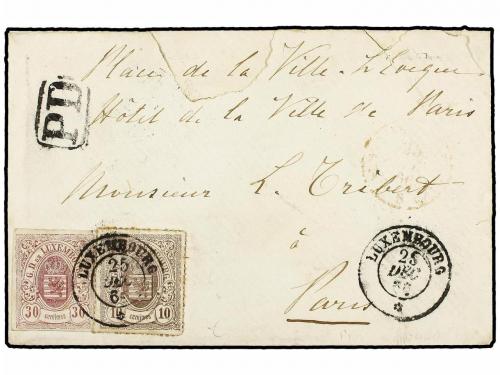 Place de la Ville-L'Evêque
PD
Hôtel de la Ville de Paris
Monsieur L. Tribert
à
Paris
LUXEMBOURG
25
DEC
*
LUXEMBOURG
25
DEC
*
G. D. DE LUXEMB.
30 CENTIMES 30
10 CENTIMES 10